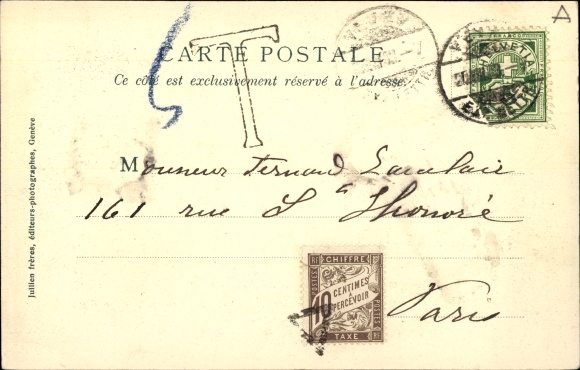 A
CARTE POSTALE
Ce côté est exclusivement réservé à l'adresse.
FRANCO
HELVETIA
Monsieur Fernand
161 rue St Honoré
Paris
RF CHIFFRE RF
POSTES
10 CENTIMES
À
PERCEVOIR
TAXE
T
Jullien frères, éditeurs-photographes, Genève